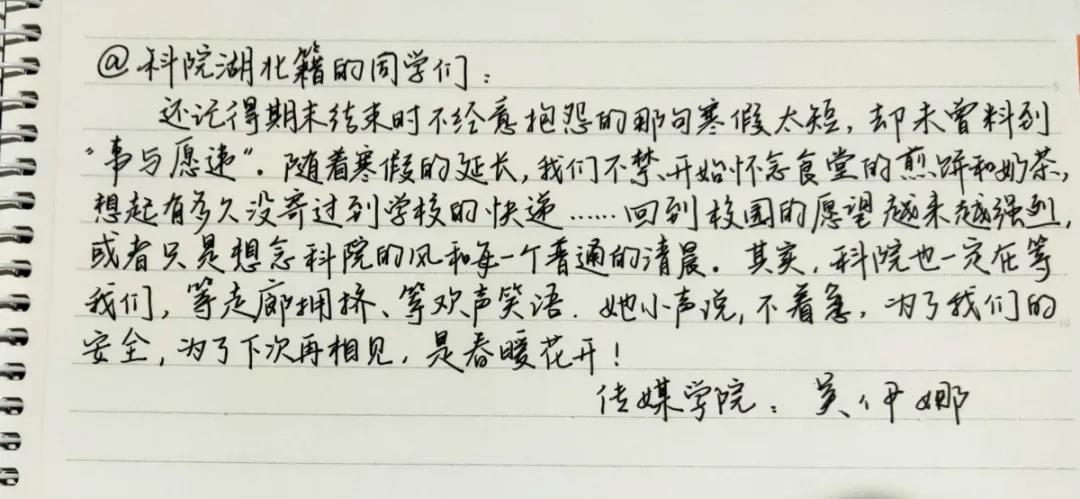 @科院湖北籍的同学们：
还记得期末结束时不经意抱怨的那句寒假太短，却未曾料到
“事与愿违”。随着寒假的延长，我们不禁开始怀念食堂的煎饼和奶茶，
想起有多久没寄过到学校的快递……回到校园的愿望越来越强烈，
或者只是想念科院的风和每一个普通的清晨。其实，科院也一定在等
我们，等走廊拥挤、等欢声笑语．她小声说，不着急，为了我们的
安全，为了下次再相见，是春暖花开！
传媒学院：吴伊娜